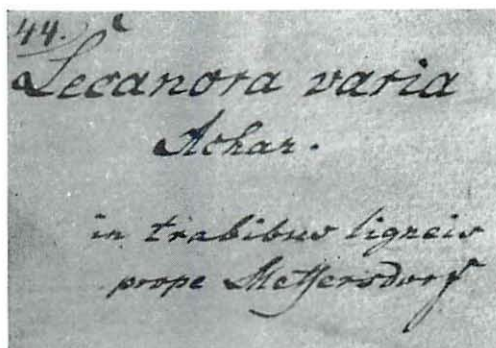 44.
Lecanora varia
Achar.
in trabibus ligneis
prope Meffersdorf